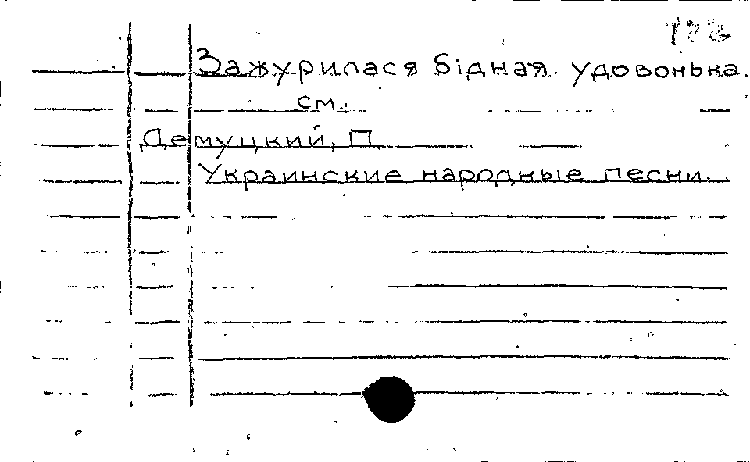 Зажурилася бідная удовонька.
см.
Демуцкий, П.
Украинские народные песни.